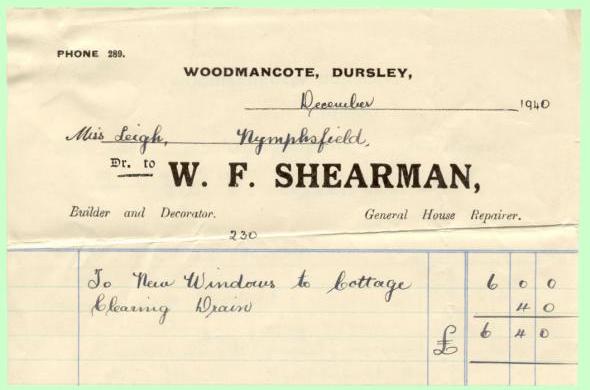 PHONE 289.
WOODMANCOTE, DURSLEY,
December 1940
Miss Leigh, Nymphsfield,
Dr. to
W. F. SHEARMAN,
Builder and Decorator. General House Repairer.
230
To New Windows to Cottage 6 0 0
Clearing Drain 4 0
£ 6 4 0